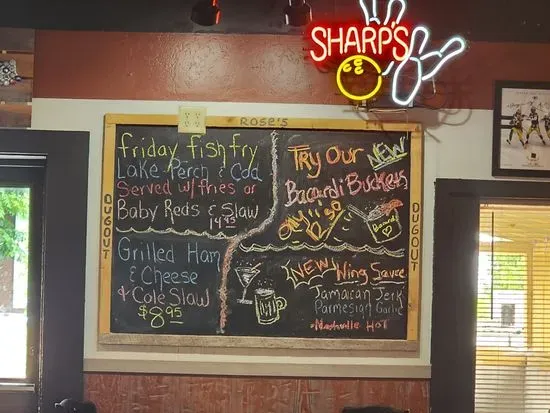 SHARP'S
ROSE'S
DUGOUT
friday fish fry
Lake Perch & Cod
Served w/ fries or
Baby Reds & Slaw
14.95
Grilled Ham
& Cheese
& Cole Slaw
$8.95
Try Our NEW
Bacardi Buckets
Only!! 12.50
NEW Wing Sauce
Jamaican Jerk
Parmesan Garlic
Nashville HOT
DUGOUT